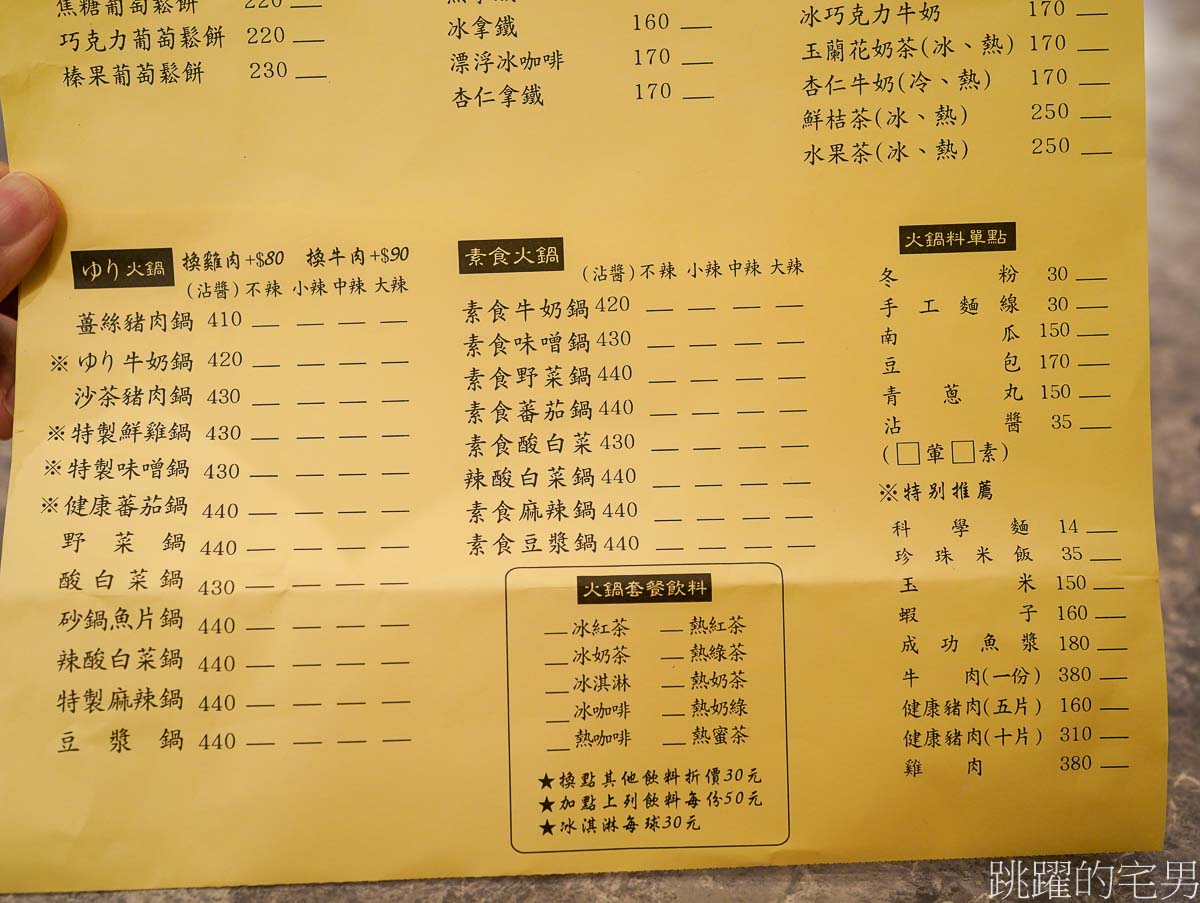 焦糖葡萄鬆餅 220
巧克力葡萄鬆餅 220
榛果葡萄鬆餅 230
冰拿鐵 160
漂浮冰咖啡 170
杏仁拿鐵 170
冰巧克力牛奶 170
玉蘭花奶茶(冰、熱) 170
杏仁牛奶(冷、熱) 170
鮮桔茶(冰、熱) 250
水果茶(冰、熱) 250
ゆり火鍋 換雞肉+$80 換牛肉+$90
(沾醬)不辣 小辣 中辣 大辣
薑絲豬肉鍋 410
※ゆり牛奶鍋 420
沙茶豬肉鍋 430
※特製鮮雞鍋 430
※特製味噌鍋 430
※健康蕃茄鍋 440
野菜鍋 440
酸白菜鍋 430
砂鍋魚片鍋 440
辣酸白菜鍋 440
特製麻辣鍋 440
豆漿鍋 440
素食火鍋
(沾醬)不辣 小辣 中辣 大辣
素食牛奶鍋 420
素食味噌鍋 430
素食野菜鍋 440
素食蕃茄鍋 440
素食酸白菜 430
辣酸白菜鍋 440
素食麻辣鍋 440
素食豆漿鍋 440
火鍋套餐飲料
冰紅茶 熱紅茶
冰奶茶 熱綠茶
冰淇淋 熱奶茶
冰咖啡 熱奶綠
熱咖啡 熱蜜茶
★換點其他飲料折價30元
★加點上列飲料每份50元
★冰淇淋每球30元
火鍋料單點
冬粉 30
手工麵線 30
南瓜 150
豆包 170
青蔥丸 150
沾醬 35
(□葷□素)
※特別推薦
科學麵 14
珍珠米飯 35
玉米 150
蝦子 160
成功魚漿 180
牛肉(一份) 380
健康豬肉(五片) 160
健康豬肉(十片) 310
雞肉 380
跳躍的宅男